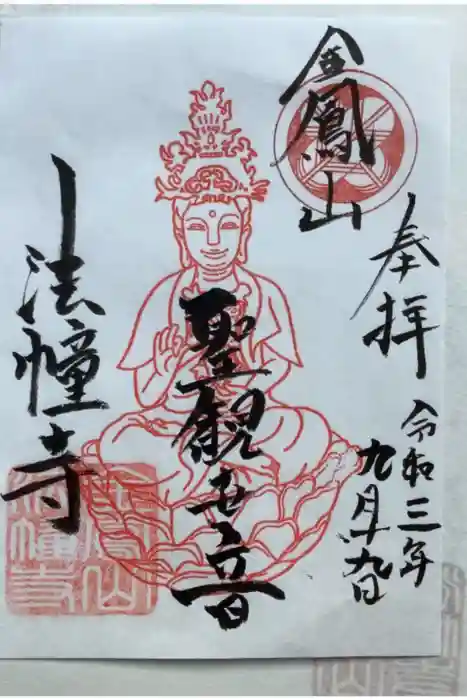 奉拝
令和三年
九月九日
金鳳山
聖観世音
法幢寺
金鳳山
法幢寺